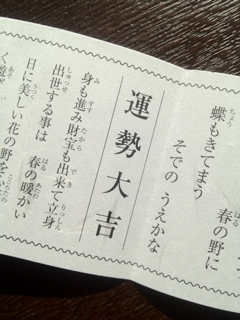 春の野に
蝶もきてまう
そでの うえかな
運勢大吉
身も進み財宝も出来て立身
出世する事は 春の暖かい
日に美しい花の野を